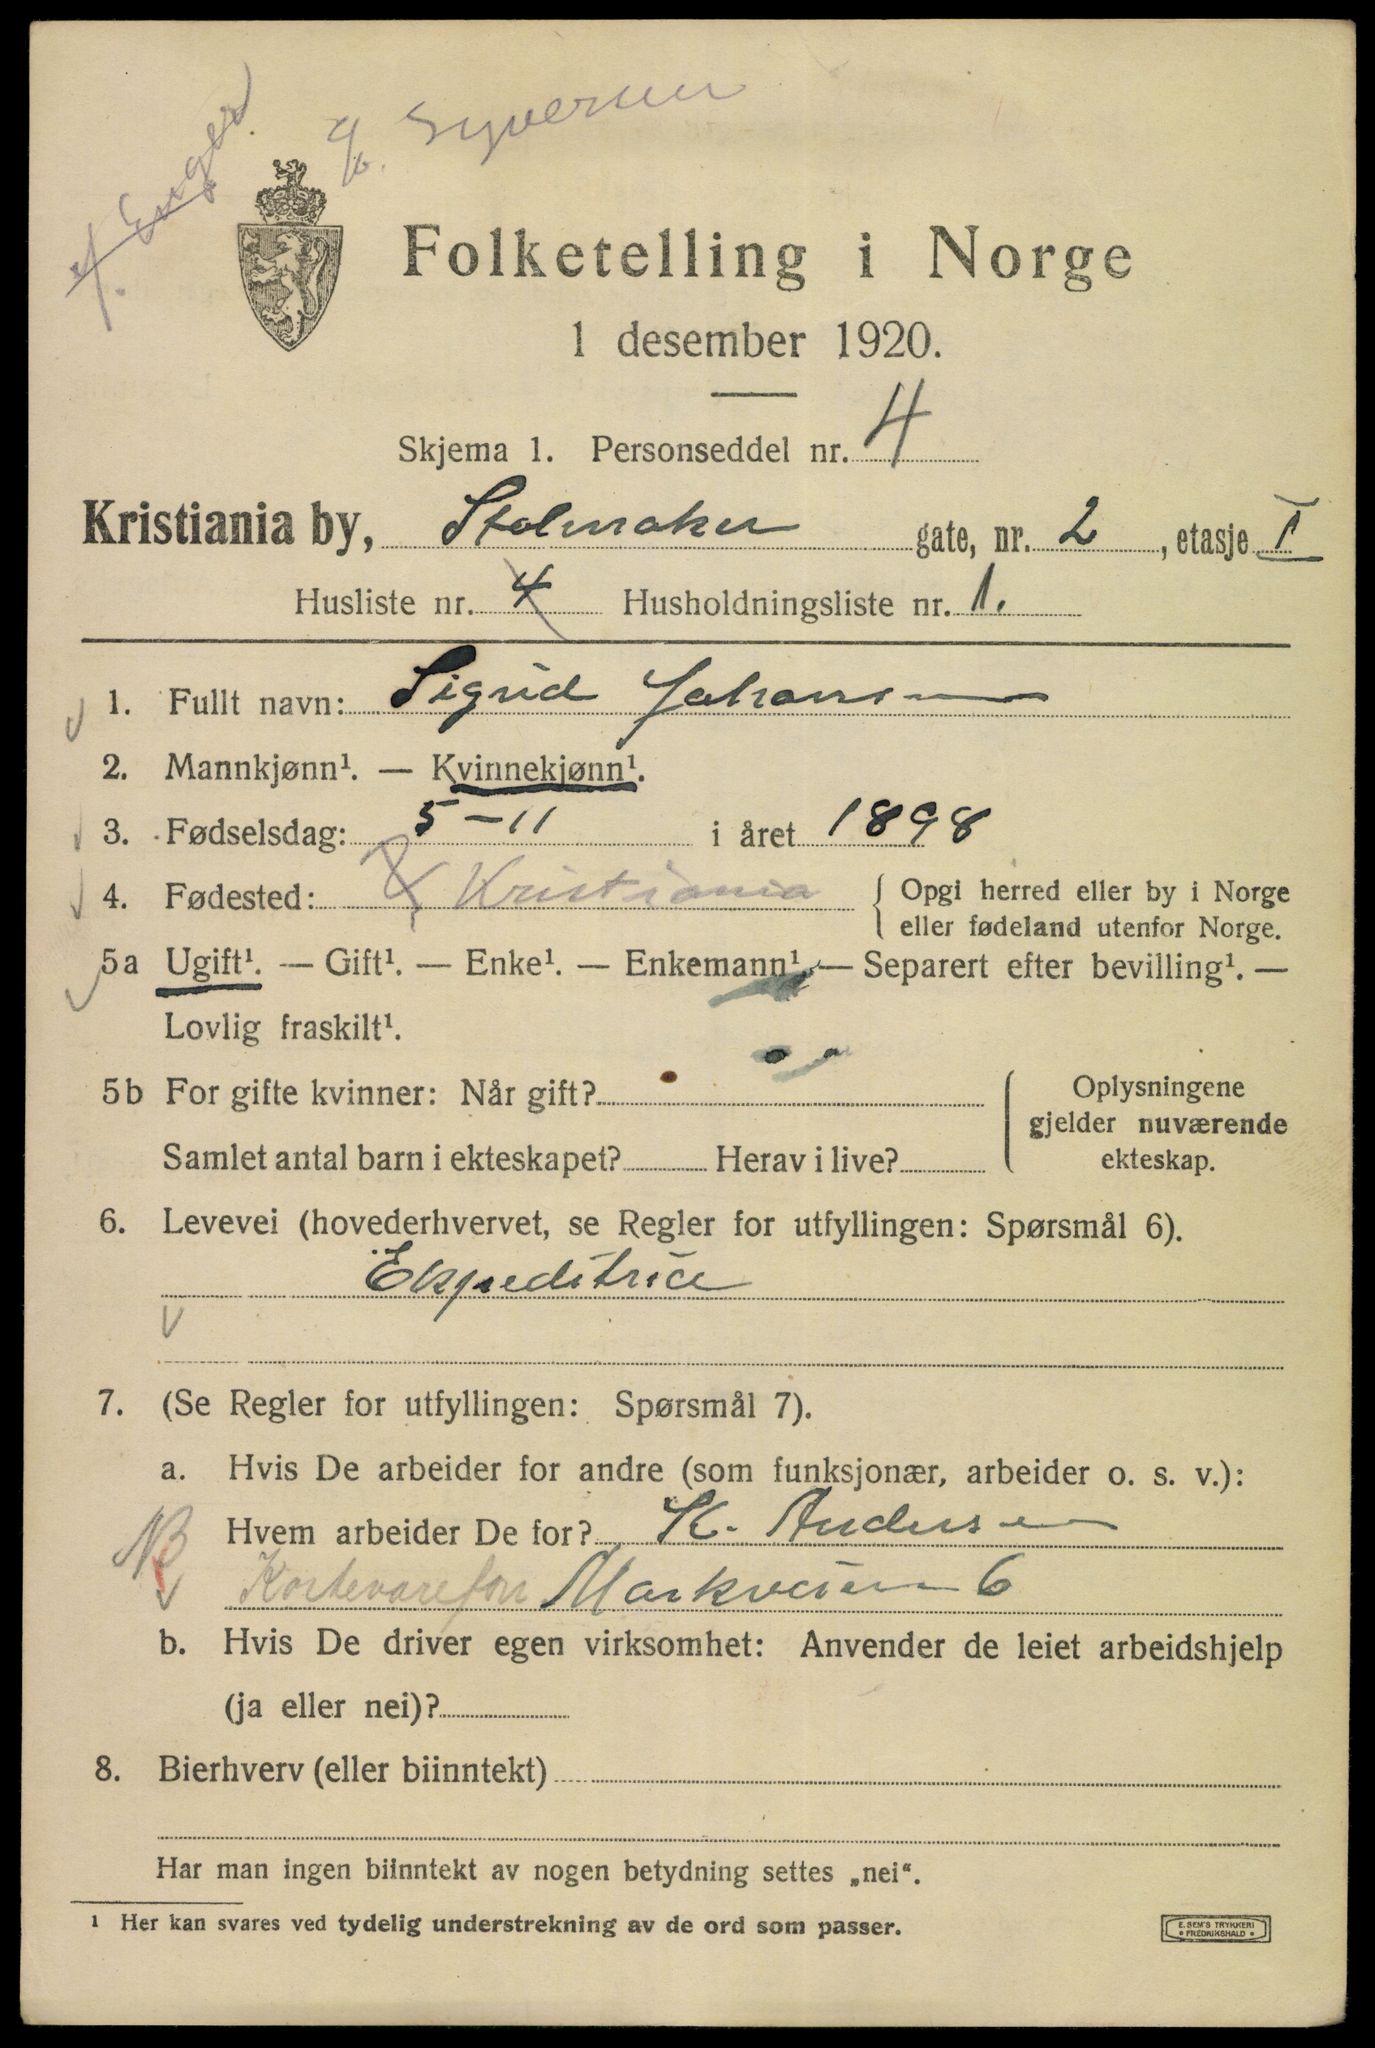 Syversen
Enger
Folketelling i Norge
1 desember 1920.
Skjema 1. Personseddel nr. 4
Kristiania by, Stolmaker gate, nr. 2, etasje I
Husliste nr. 4 Husholdningsliste nr. 1.
1. Fullt navn: Sigrid Johansen
2. Mannkjønn¹. — Kvinnekjønn¹.
3. Fødselsdag: 5-11 i året 1898
4. Fødested: Kristiania { Opgi herred eller by i Norge
eller fødeland utenfor Norge.
5a Ugift¹. — Gift¹. — Enke¹. — Enkemann¹. — Separert efter bevilling¹. —
Lovlig fraskilt¹.
5b For gifte kvinner: Når gift? Oplysningene
gjelder nuværende
Samlet antal barn i ekteskapet? Herav i live? ekteskap.
6. Levevei (hovederhvervet, se Regler for utfyllingen: Spørsmål 6).
Ekspeditrice
7. (Se Regler for utfyllingen: Spørsmål 7).
a. Hvis De arbeider for andre (som funksjonær, arbeider o. s. v.):
NB Hvem arbeider De for? K. Andersen
Kortevareforr Markveien 6
b. Hvis De driver egen virksomhet: Anvender de leiet arbeidshjelp
(ja eller nei)?
8. Bierhverv (eller biinntekt)
Har man ingen biinntekt av nogen betydning settes „nei“.
¹ Her kan svares ved tydelig understrekning av de ord som passer.
E. SEM'S TRYKKERI
• FREDRIKSHALD •